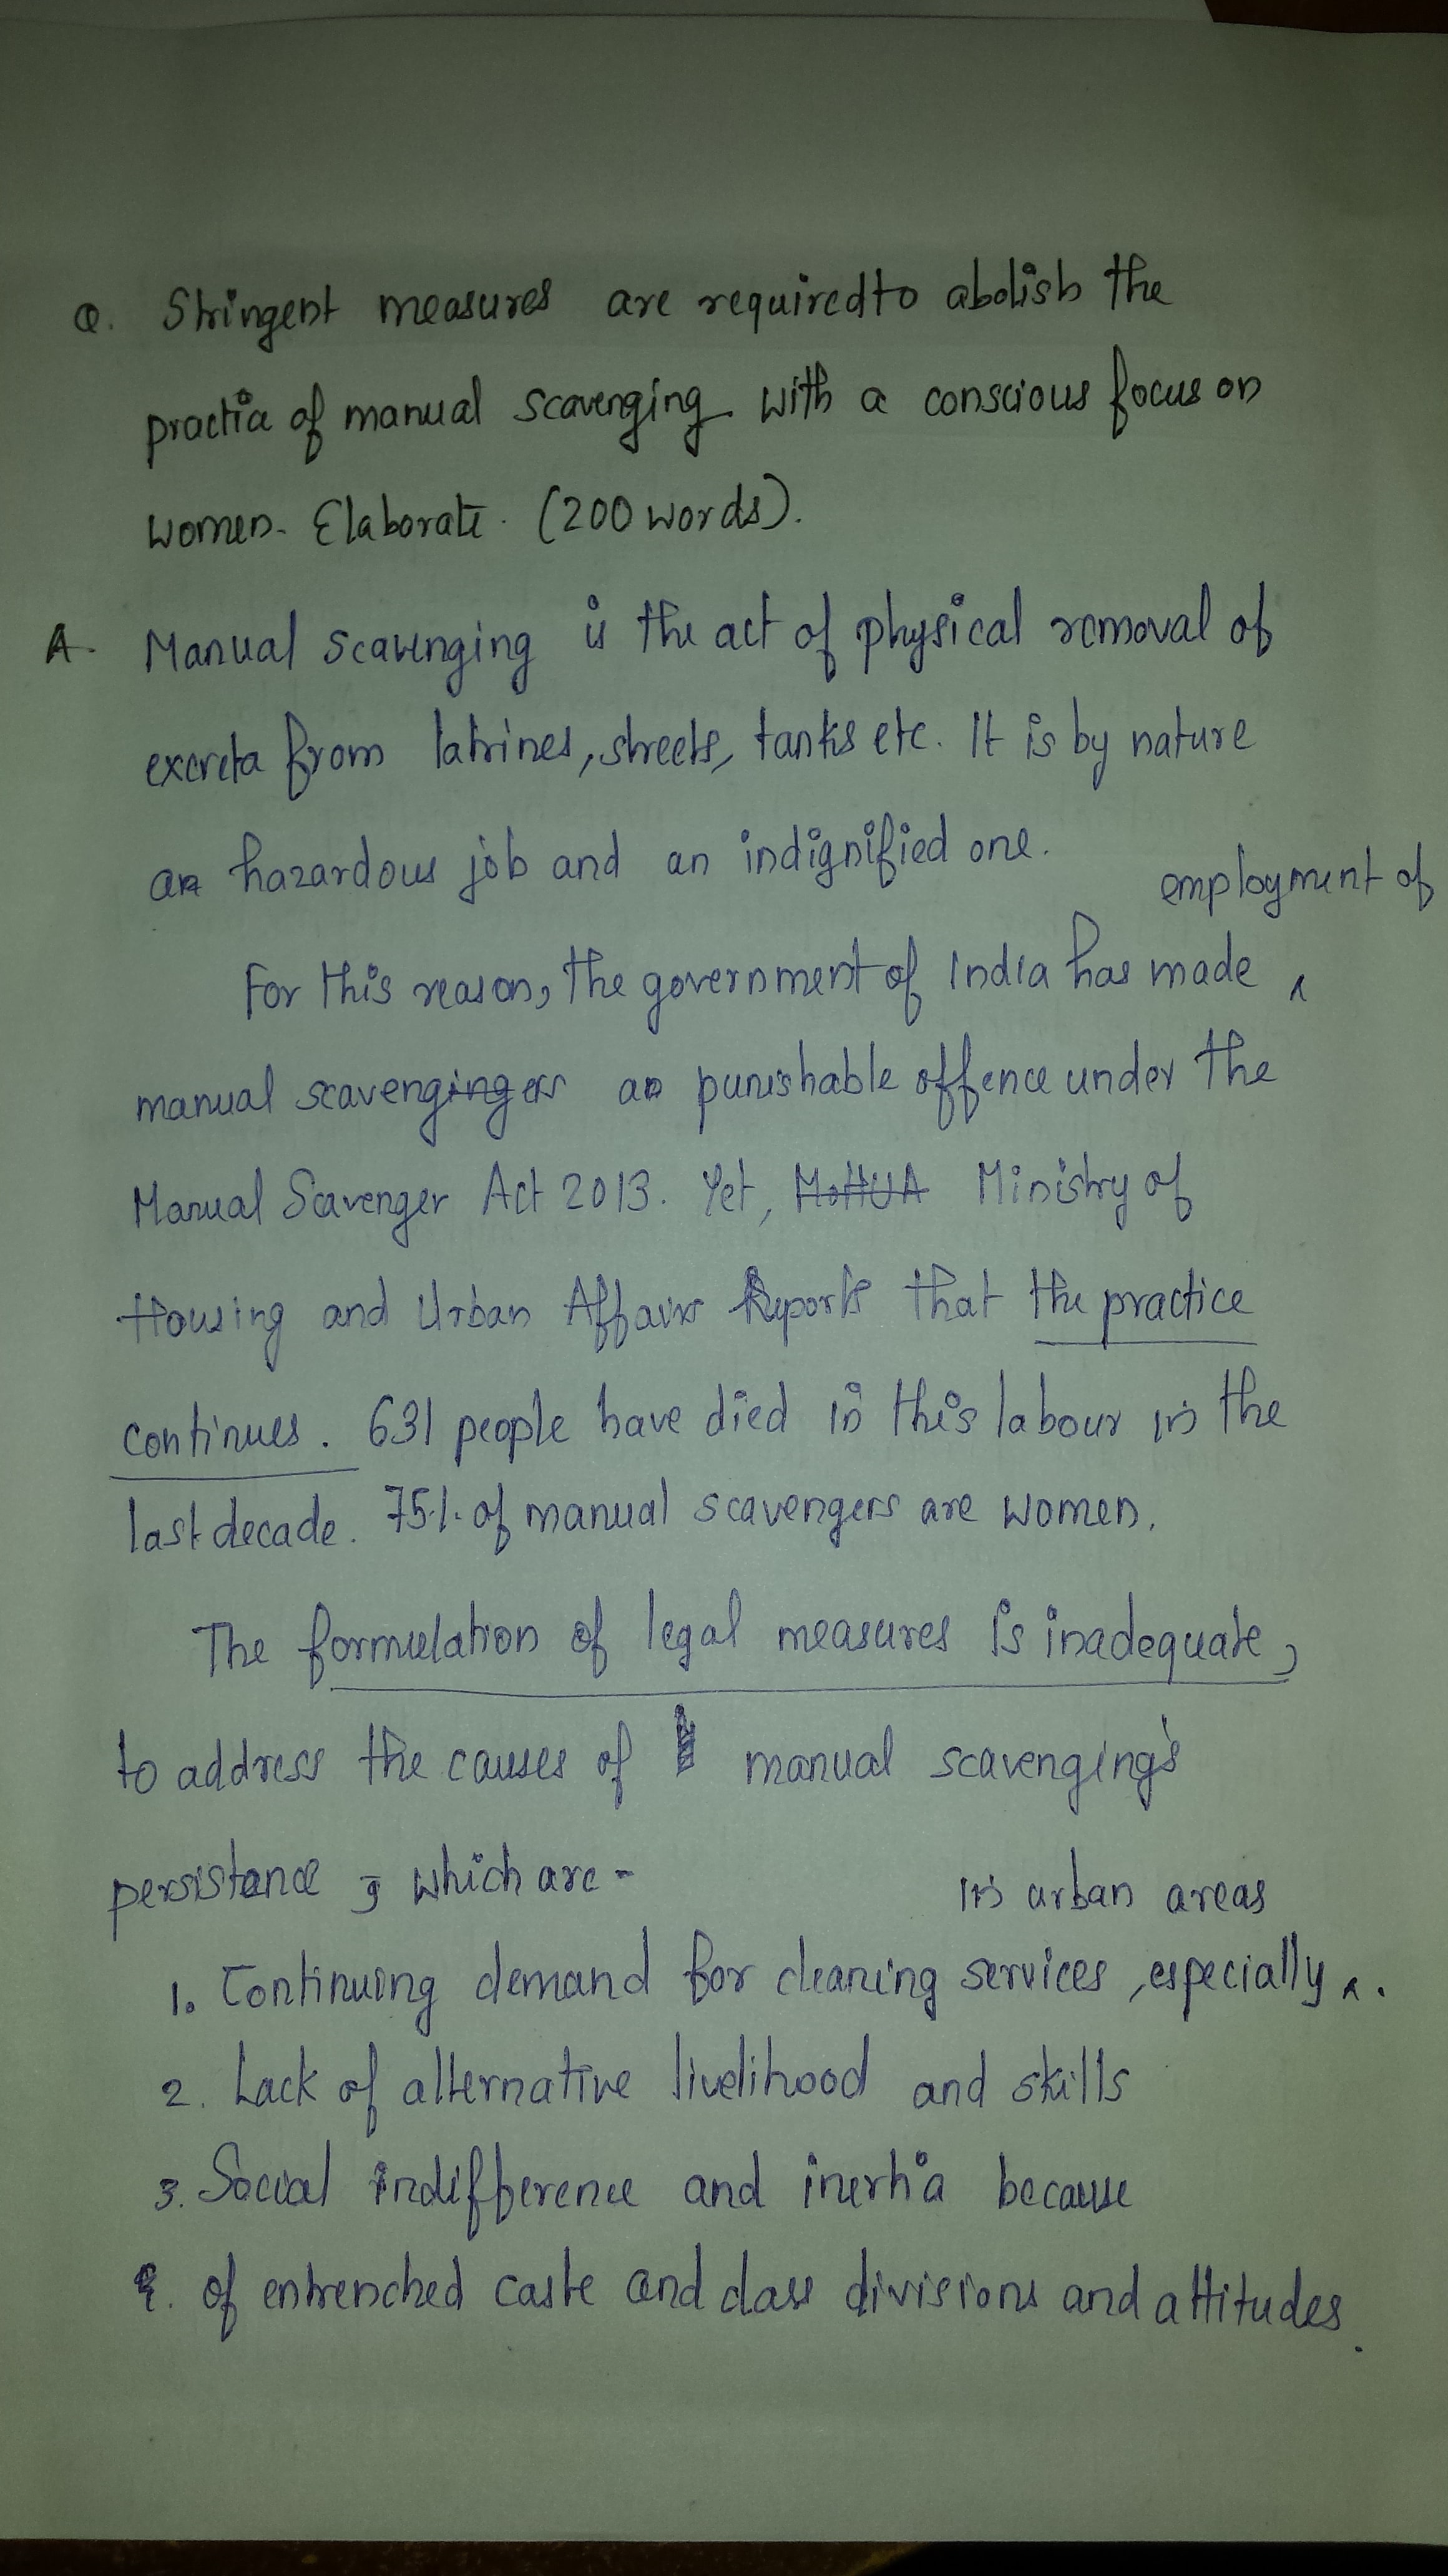 Q. Stringent measures are required to abolish the
practice of manual scavenging with a conscious focus on
women. Elaborate. (200 words).
A. Manual scavenging is the act of physical removal of
excreta from latrines, streets, tanks etc. It is by nature
an hazardous job and an indignified one.
employment of
For this reason, the government of India has made ^
manual scavengingers as punishable offence under the
Manual Scavenger Act 2013. Yet, MoHUA Ministry of
Housing and Urban Affairs Reports that the practice
continues. 631 people have died in this labour in the
last decade. 75% of manual scavengers are women.
The formulation of legal measures is inadequate,
to address the causes of manual scavenging's
persistance, which are -
in urban areas
1. Continuing demand for cleaning services, especially ^.
2. Lack of alternative livelihood and skills
3. Social indifference and inertia because
of entrenched caste and class divisions and attitudes.